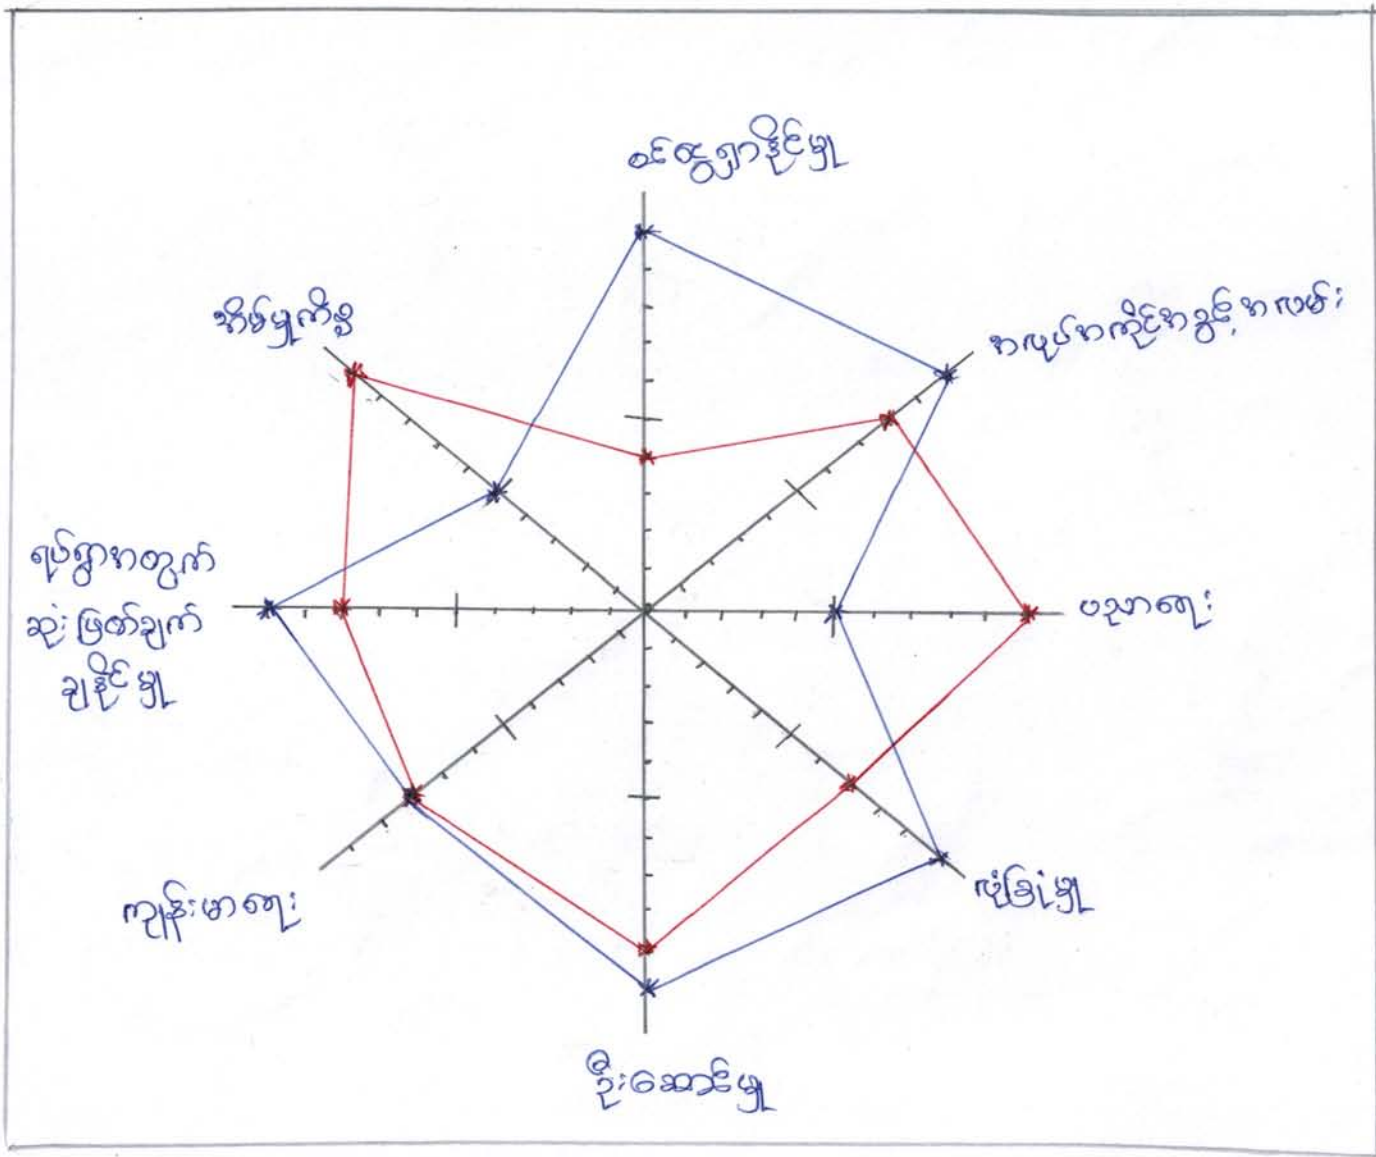 ဝင်ငွေရှာနိုင်မှု
အလုပ်အကိုင်အခွင့်အလမ်း
ပညာရေး
လုံခြုံမှု
ဦးဆောင်မှု
ကျန်းမာရေး
ရပ်ရွာအတွက်
ဆုံးဖြတ်ချက်
ချနိုင်မှု
အိမ်မှုကိစ္စ